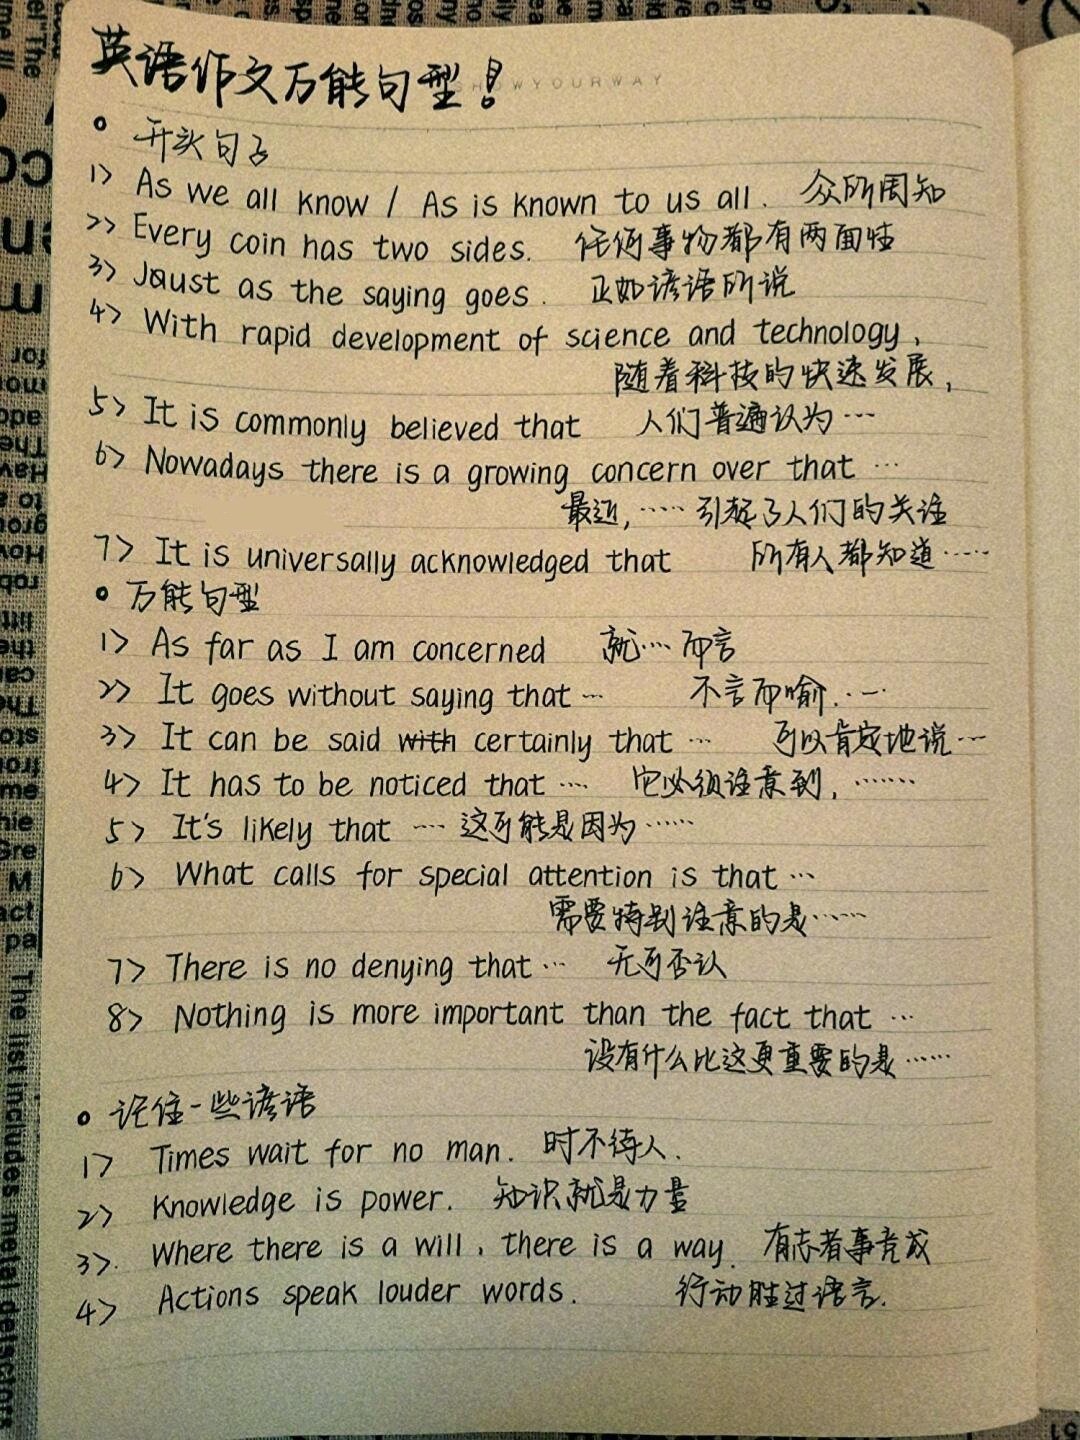 英语作文万能句型!
OWYOURWAY
开头句子
1> As we all know / As is known to us all. 众所周知
2> Every coin has two sides. 任何事物都有两面性
3> Jaust as the saying goes. 正如谚语所说
4> With rapid development of science and technology,
随着科技的快速发展,
5> It is commonly believed that 人们普遍认为…
6> Nowadays there is a growing concern over that …
最近,…… 引起了人们的关注
7> It is universally acknowledged that 所有人都知道……
万能句型
1> As far as I am concerned 就…而言
2> It goes without saying that … 不言而喻…
3> It can be said with certainly that … 可以肯定地说…
4> It has to be noticed that … 它必须注意到, ……
5> It's likely that … 这可能是因为……
6> What calls for special attention is that …
需要特别注意的是……
7> There is no denying that … 无可否认
8> Nothing is more important than the fact that …
没有什么比这更重要的是……
记住一些谚语
1> Times wait for no man. 时不待人.
2> Knowledge is power. 知识就是力量
3> Where there is a will, there is a way. 有志者事竞成
4> Actions speak louder words. 行动胜过语言.
The list includes metal